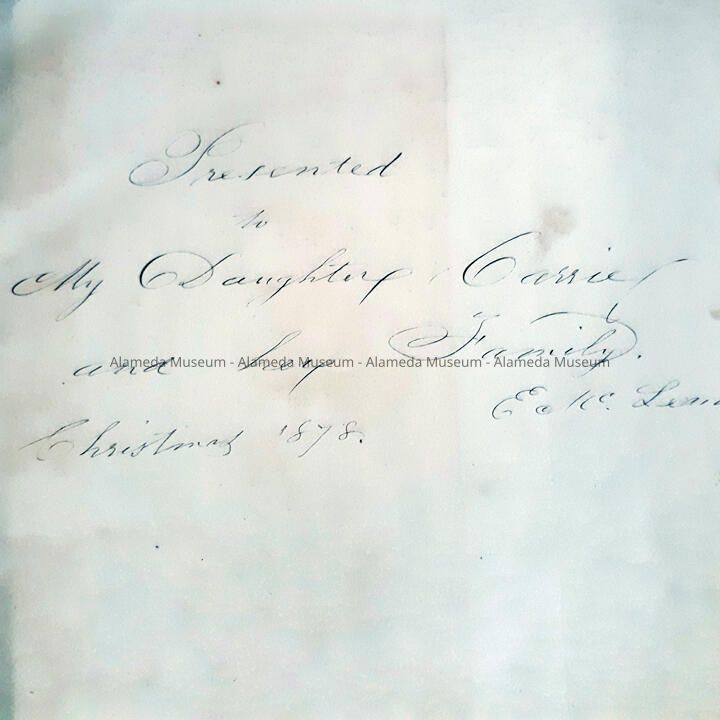 Presented
to
My Daughter Carrie
and her Family.
Alameda Museum - Alameda Museum - Alameda Museum - Alameda Museum
Christmas 1878.